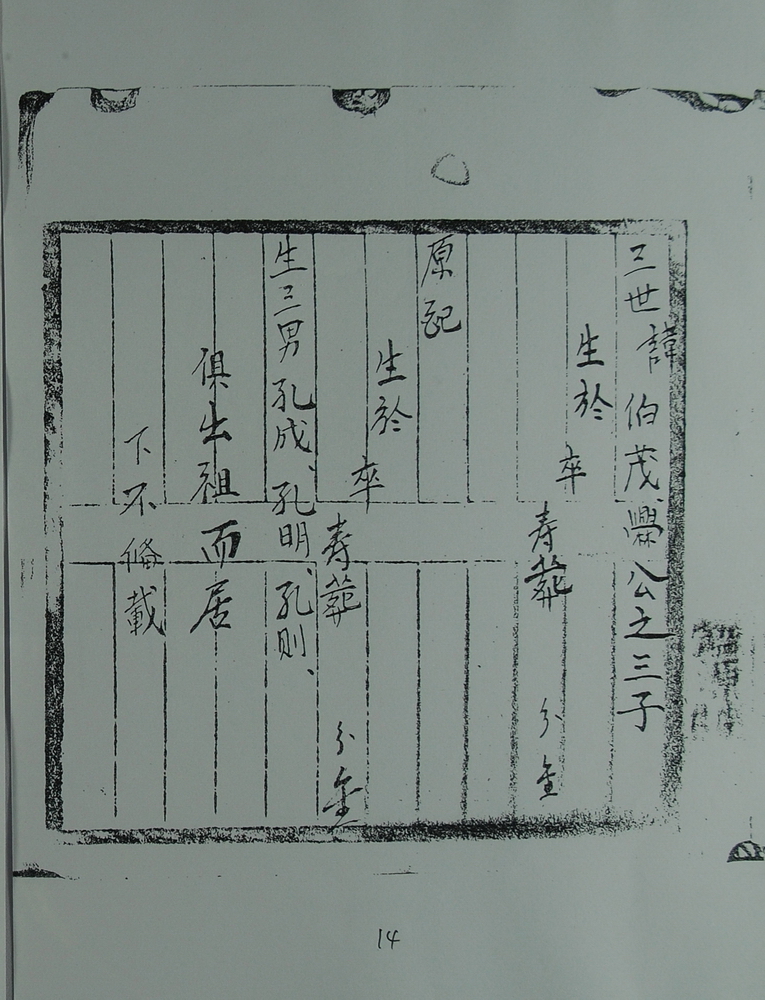 三世諱伯茂爨公之三子
生於
卒
寿葬
分金
原配
生於
卒
寿葬
分金
生三男孔成、孔明、孔则、
俱出祖而居
下不俻載
14